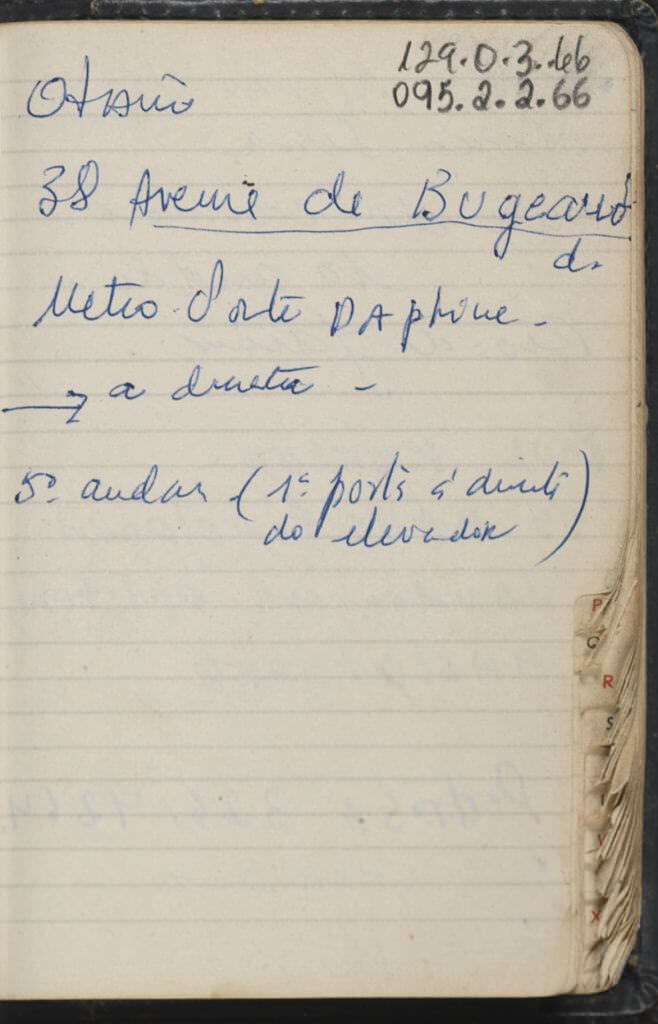 129.0.3.66
095.2.2.66
Otavio
38 Avenue de Bugeaud
d.
Metro Porte DAphine -
→ a direita -
5º andar (1ª porta á direita
do elevador)
P
R
S
V
X